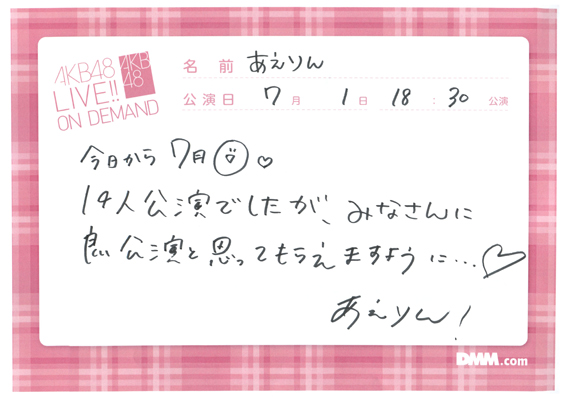 AKB48
LIVE!!
ON DEMAND
AKB
48
名前 あえりん
公演日 7月 1日 18:30 公演
今日から7月♡
14人公演でしたが、みなさんに
良い公演と思ってもらえますように…♡
あえりん!
DMM.com